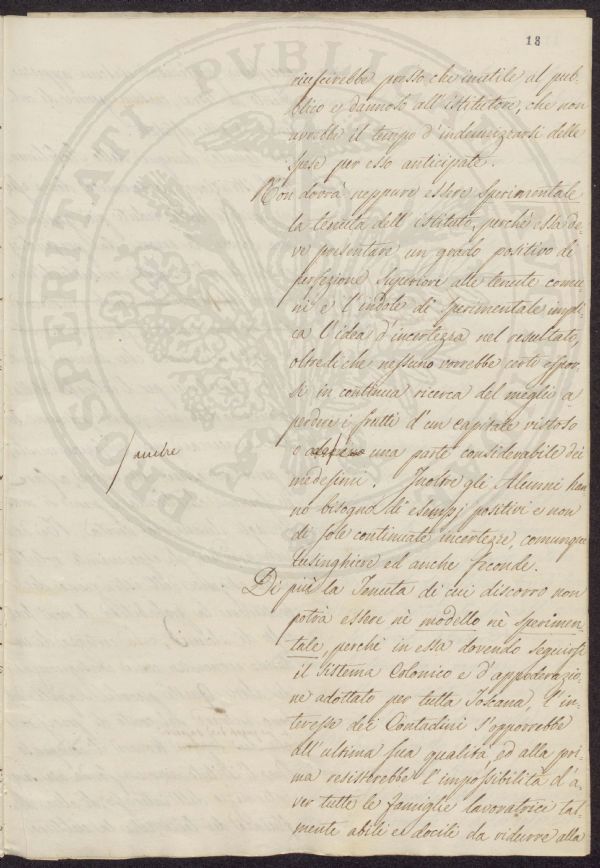 18
riuscirebbe presso che inutile al pub-
blico e dannoso all'istitutore, che non
avrebbe il tempo d'indennizzarsi delle
spese per esso anticipate.
Non dovrà neppure essere sperimentale
la tenuta dell'istituto, perchè essa de-
ve presentare un grado positivo di
perfezione superiore alle tenute comu
ni e l'indole di sperimentale impli
ca l'idea d'incertezza nel resultato,
oltredichè nessuno vorrebbe certo espor-
si in continua ricerca del meglio a
perdere i frutti d'un capitale vistoso
o una parte considerabile dei
/ anche
medesimi. Inoltre gli Alunni han
no bisogno di esempj positivi e non
di sole continuate incertezze, comunque
lusinghiere ed anche feconde.
Di più la Tenuta di cui discorro non
potrà essere nè modello nè sperimen
tale, perchè in essa dovendo seguirsi
il Sistema Colonico e d'appoderazio-
ne adottato per tutta Toscana, l'in-
teresse dei Contadini s'opporrebbe
all'ultima sua qualità, ed alla pri-
ma resisterebbe l'impossibilità d'a-
ver tutte le famiglie lavoratrici tal-
mente abili e docili da ridurre alla
PROSPERITATI PUBLICAE